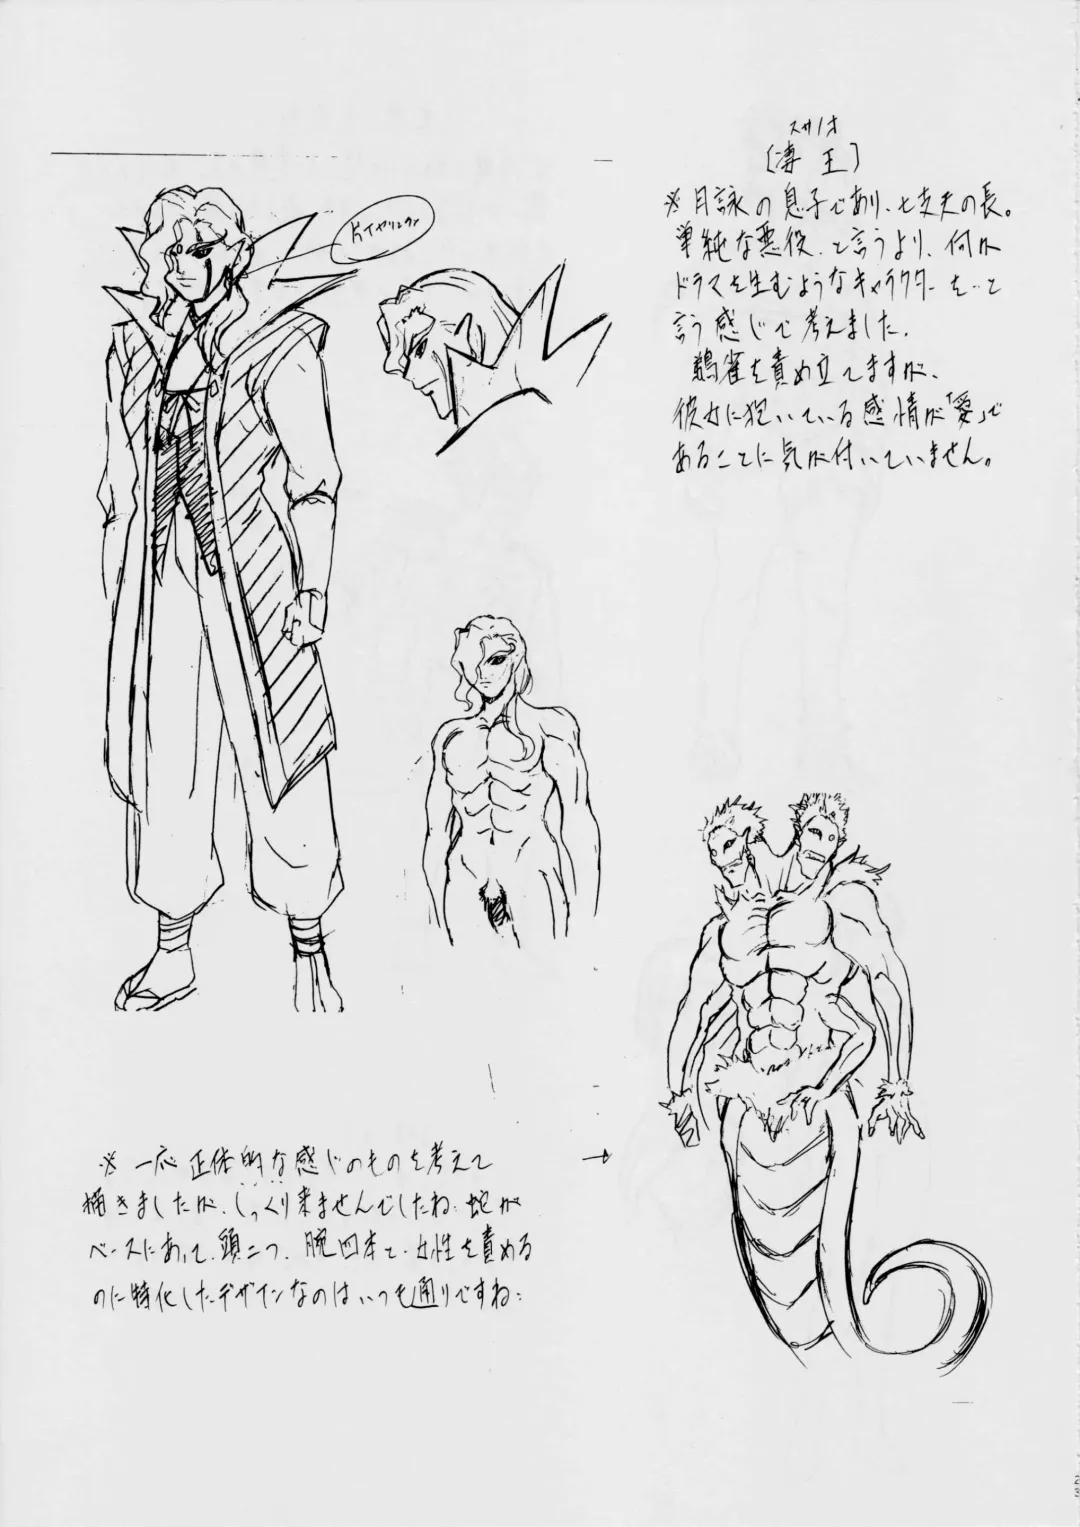 スサノオ
〔凄王〕
※月詠の息子であり、七支夫の長。
単純な悪役、と言うより、何か
ドラマを生むようなキャラクターを…と
言う感じで考えました。
鵺雀を責め立てますが、
彼女に抱いている感情が「愛」で
あることに気が付いていません。
片イヤリング
※一応正体的な感じのものを考えて
描きましたが、しっくり来ませんでしたね…蛇が
ベースにあって、頭二つ、腕四本で、女性を責める
のに特化したデザインなのはいつも通りですね…
23